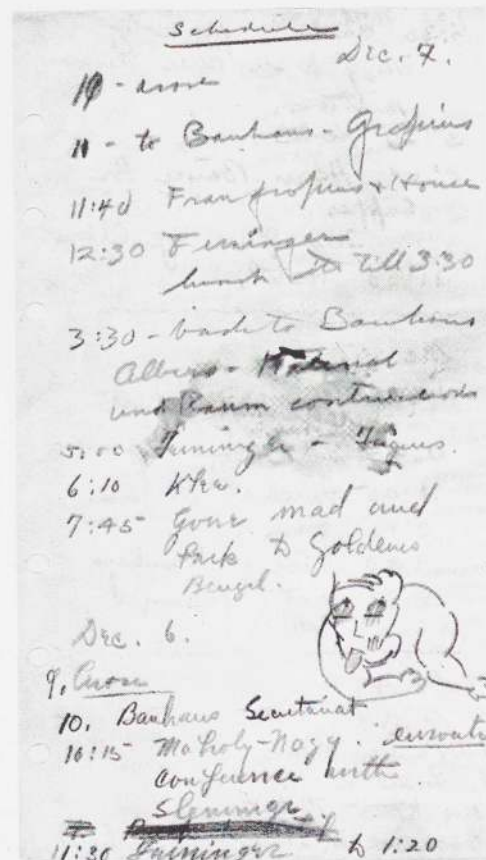 Schedule
Dec. 7.
10 - arose
11 - to Bauhaus - Gropius
11:40 Frau Gropius + House
12:30 Feininger
lunch till 3:30
3:30 - back to Bauhaus
Albers - Material
und Raum
5:00 Feininger -
6:10 Klee.
7:45 Gone mad and
back to Goldenes
Beugel.
Dec. 6.
9. Arose
10. Bauhaus Secretariat
10:15 Moholy-Nagy.
conference with
11:30 Feininger to 1:20